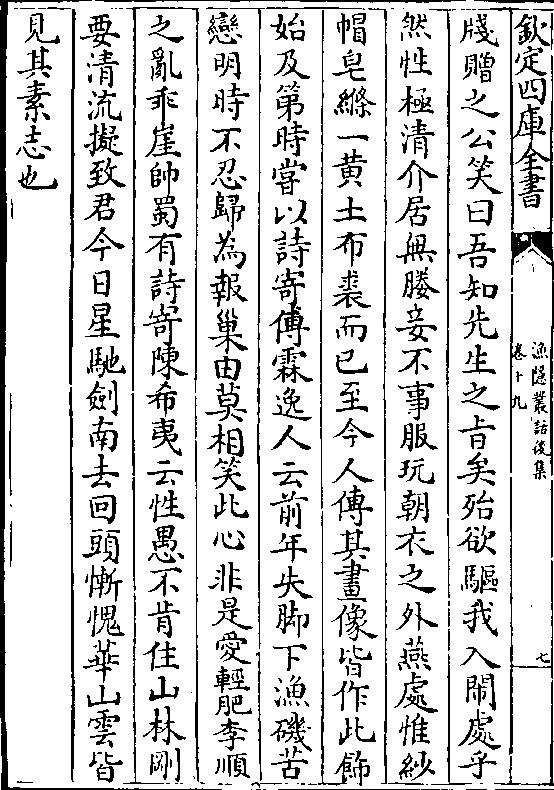 欽定四庫全書
漁隠叢話後集
卷十九
七
牋贈之公笑曰吾知先生之㫖矣殆欲驅我入閙處乎
然性極清介居無媵妾不事服玩朝衣之外燕處惟紗
帽皂絛一黄土布裘而已至今人傳其畫像皆作此飾
始及第時嘗以詩寄傅霖逸人云前年失脚下漁磯苦
戀明時不忍歸為報巢由莫相笑此心非是愛輕肥李順
之亂乖崖帥蜀有詩寄陳希夷云性愚不肯住山林剛
要清流擬致君今日星馳劍南去回頭慚愧華山雲皆
見其素志也